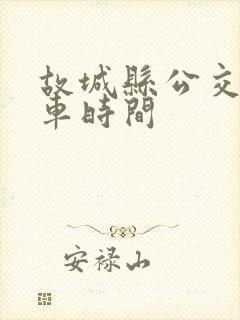 故城縣公交
車時間
安禄山